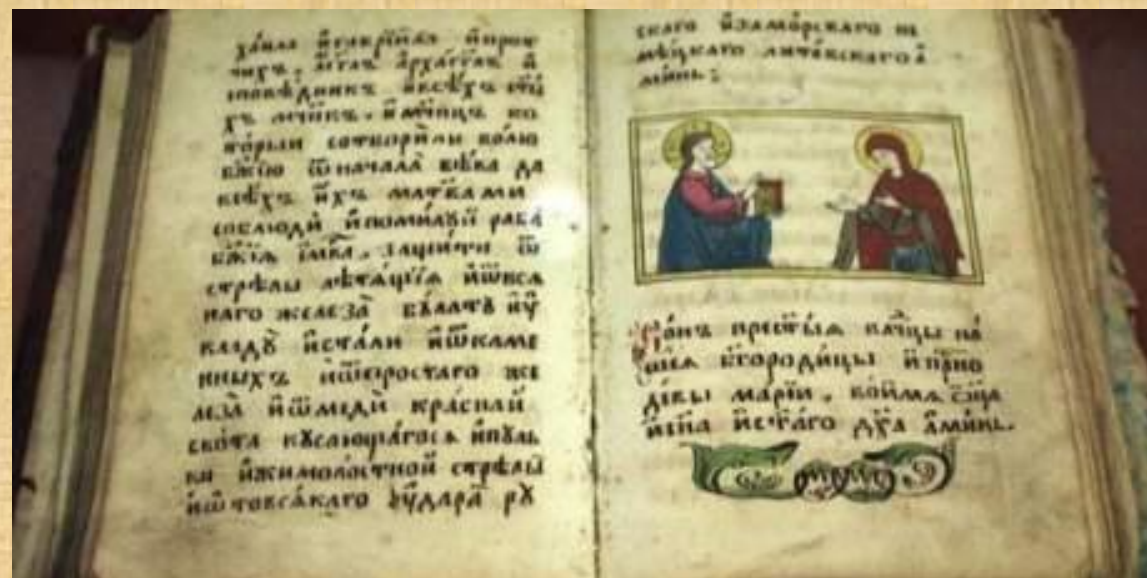 хаила и҆гаврїила и҆проч
чихъ, а҆гг҃лъ а҆рха́гг҃лъ и҆
споведникъ и҆всѣхъ ст҃ы
хъ мч҃нкъ. и҆мч҃ницъ ко
торыи сотвори́ли во́лю
бж҃їю ѿнача́ла вѣ́ка да
всѣ́хъ и҆хъ мл҃твами
соблюди́ и҆поми́луй раба̀
бж҃їѧ и҆мк҃ъ. защити ѿ
стрѣлы лѣтѧ́щїѧ и҆ѿвсѧ
каго желѣза̀ ꙋ҆
кладꙋ̀ и҆ста́ли и҆ѿкаме
нныхъ и҆ѿпростаго же
леза̀ и҆ѿмедѝ кра́сныѧ
кꙋса́ющагосѧ и҆пꙋль
ки и҆жимолостной стрѣлы̀
и҆ѿтовсѧ́каго ᲂу҆дара̀ рꙋ
скаго и҆замо́рскаго не
ме́цкаго лито́вскаго а҆
ми́нь:
со́нъ прест҃ы́ѧ вл҃чцы на́
шеѧ бг҃ородицы и҆прⷭ҇но
де́вы мар҄їи. во́имѧ ѻц҃а
и҆сн҃а и҆ст҃а́го дх҃а а҆ми́нь.